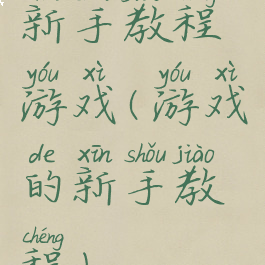 新手教程
yóu xì yóu xì
游戏(游戏
de xīn shǒu jiào
的新手教
chéng
程)